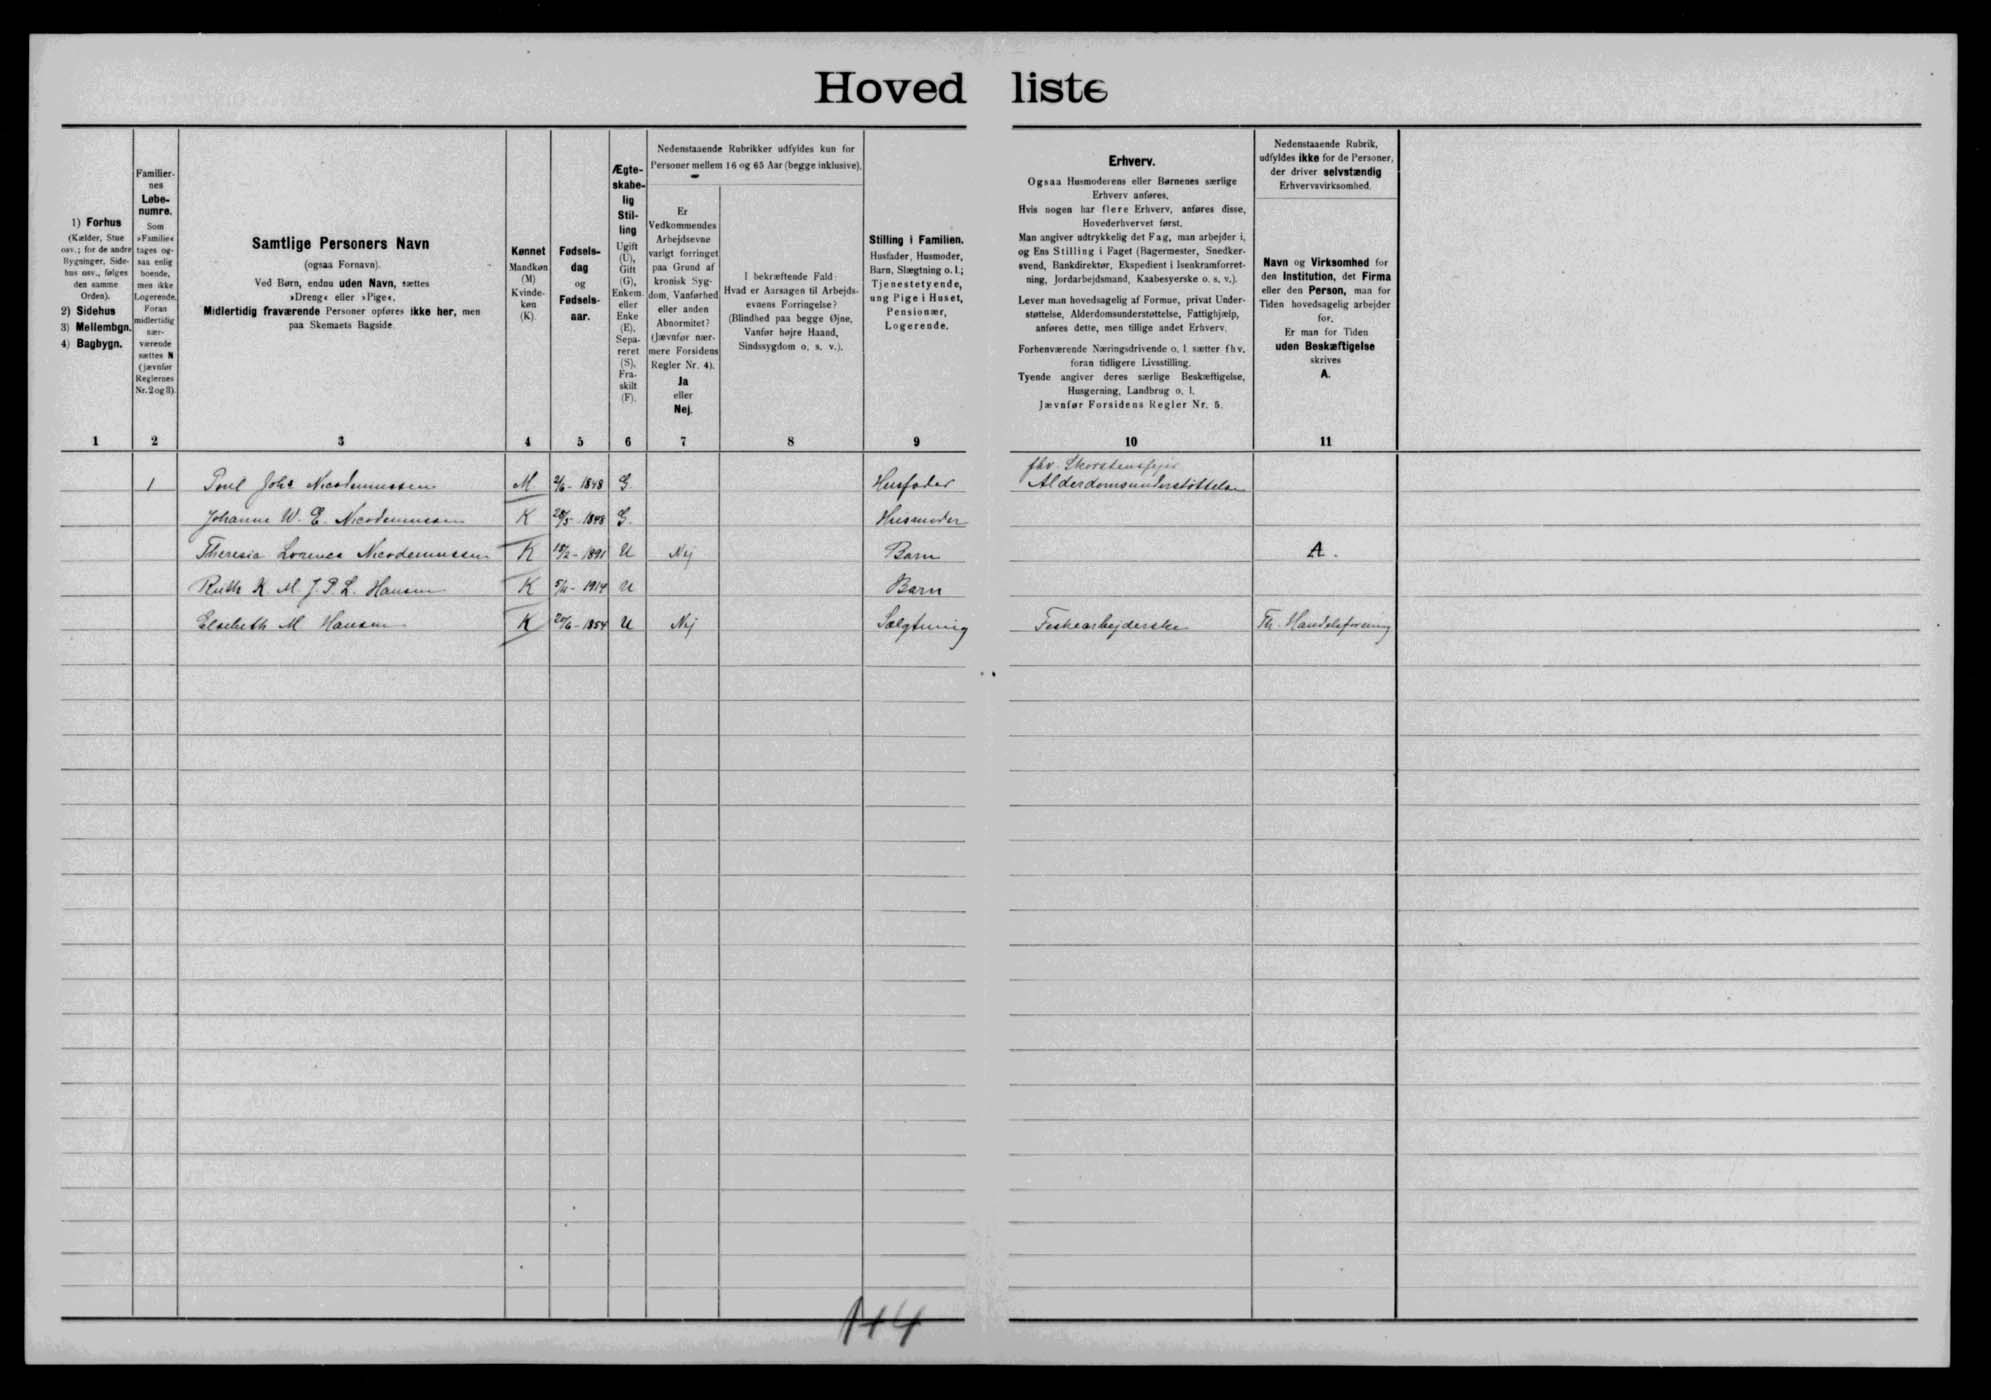 Hovedliste
1) Forhus
(Kælder, Stue
osv.; for de andre
Bygninger, Side-
hus osv., følges
den samme
Orden).
2) Sidehus
3) Mellembgn.
4) Bagbygn.
Familier-
nes
Løbe-
numre.
Som
»Familie«
tages og-
saa enlig
boende,
men ikke
Logerende.
Foran
midlertidig
nær-
værende
sættes N
(jævnfør
Reglernes
Nr. 2 og 3)
Samtlige Personers Navn
(ogsaa Fornavn).
Ved Børn, endnu uden Navn, sættes
»Dreng« eller »Pige«.
Midlertidig fraværende Personer opføres ikke her, men
paa Skemaets Bagside.
Kønnet
Mandkøn
(M)
Kvinde-
køn
(K).
Fødsels-
dag
og
Fødsels-
aar.
Ægte-
skabe-
lig
Stil-
ling
Ugift
(U),
Gift
(G),
Enkem.
eller
Enke
(E).
Sepa-
reret
(S),
Fra-
skilt
(F).
Nedenstaaende Rubrikker udfyldes kun for
Personer mellem 16 og 65 Aar (begge inklusive).
Er
Vedkommendes
Arbejdsevne
varigt forringet
paa Grund af
kronisk Syg-
dom, Vanførhed
eller anden
Abnormitet?
(Jævnfør nær-
mere Forsidens
Regler Nr. 4).
Ja
eller
Nej.
I bekræftende Fald:
Hvad er Aarsagen til Arbejds-
evnens Forringelse?
(Blindhed paa begge Øjne,
Vanfør højre Haand,
Sindssygdom o. s. v.).
Stilling i Familien.
Husfader, Husmoder,
Barn, Slægtning o. l.;
Tjenestetyende,
ung Pige i Huset,
Pensionær,
Logerende.
Erhverv.
Ogsaa Husmoderens eller Børnenes særlige
Erhverv anføres.
Hvis nogen har flere Erhverv, anføres disse,
Hovederhvervet først.
Man angiver udtrykkelig det Fag, man arbejder i,
og Ens Stilling i Faget (Bagermester, Snedker-
svend, Bankdirektør, Ekspedient i Isenkramforret-
ning, Jordarbejdsmand, Kaabesyerske o. s. v.).
Lever man hovedsagelig af Formue, privat Under-
støttelse, Alderdomsunderstøttelse, Fattighjælp,
anføres dette, men tillige andet Erhverv.
Forhenværende Næringsdrivende o. l. sætter fhv.
foran tidligere Livsstilling.
Tyende angiver deres særlige Beskæftigelse,
Husgerning, Landbrug o. l.
Jævnfør Forsidens Regler Nr. 5.
Nedenstaaende Rubrik,
udfyldes ikke for de Personer,
der driver selvstændig
Erhvervsvirksomhed.
Navn og Virksomhed for
den Institution, det Firma
eller den Person, man for
Tiden hovedsagelig arbejder
for.
Er man for Tiden
uden Beskæftigelse
skrives
A.
1 2 3 4 5 6 7 8 9 10 11
fhv. Skorstensfejer
1 Poul Johs Nicodemussen M 2/6-1848 G. Husfader Alderdomsunderstøttelse
Johanne W. E. Nicodemussen K 28/5-1848 G. Husmoder
Theresia Lorence Nicodemussen K 1891 U Nej Barn A.
Ruth K. M. J. P. L. Hansen K 1914 U Barn
Elsebeth M Hansen K 20/6-1854 U Nej Sælgtning Feskearbejderske Th. Handelsforening
144